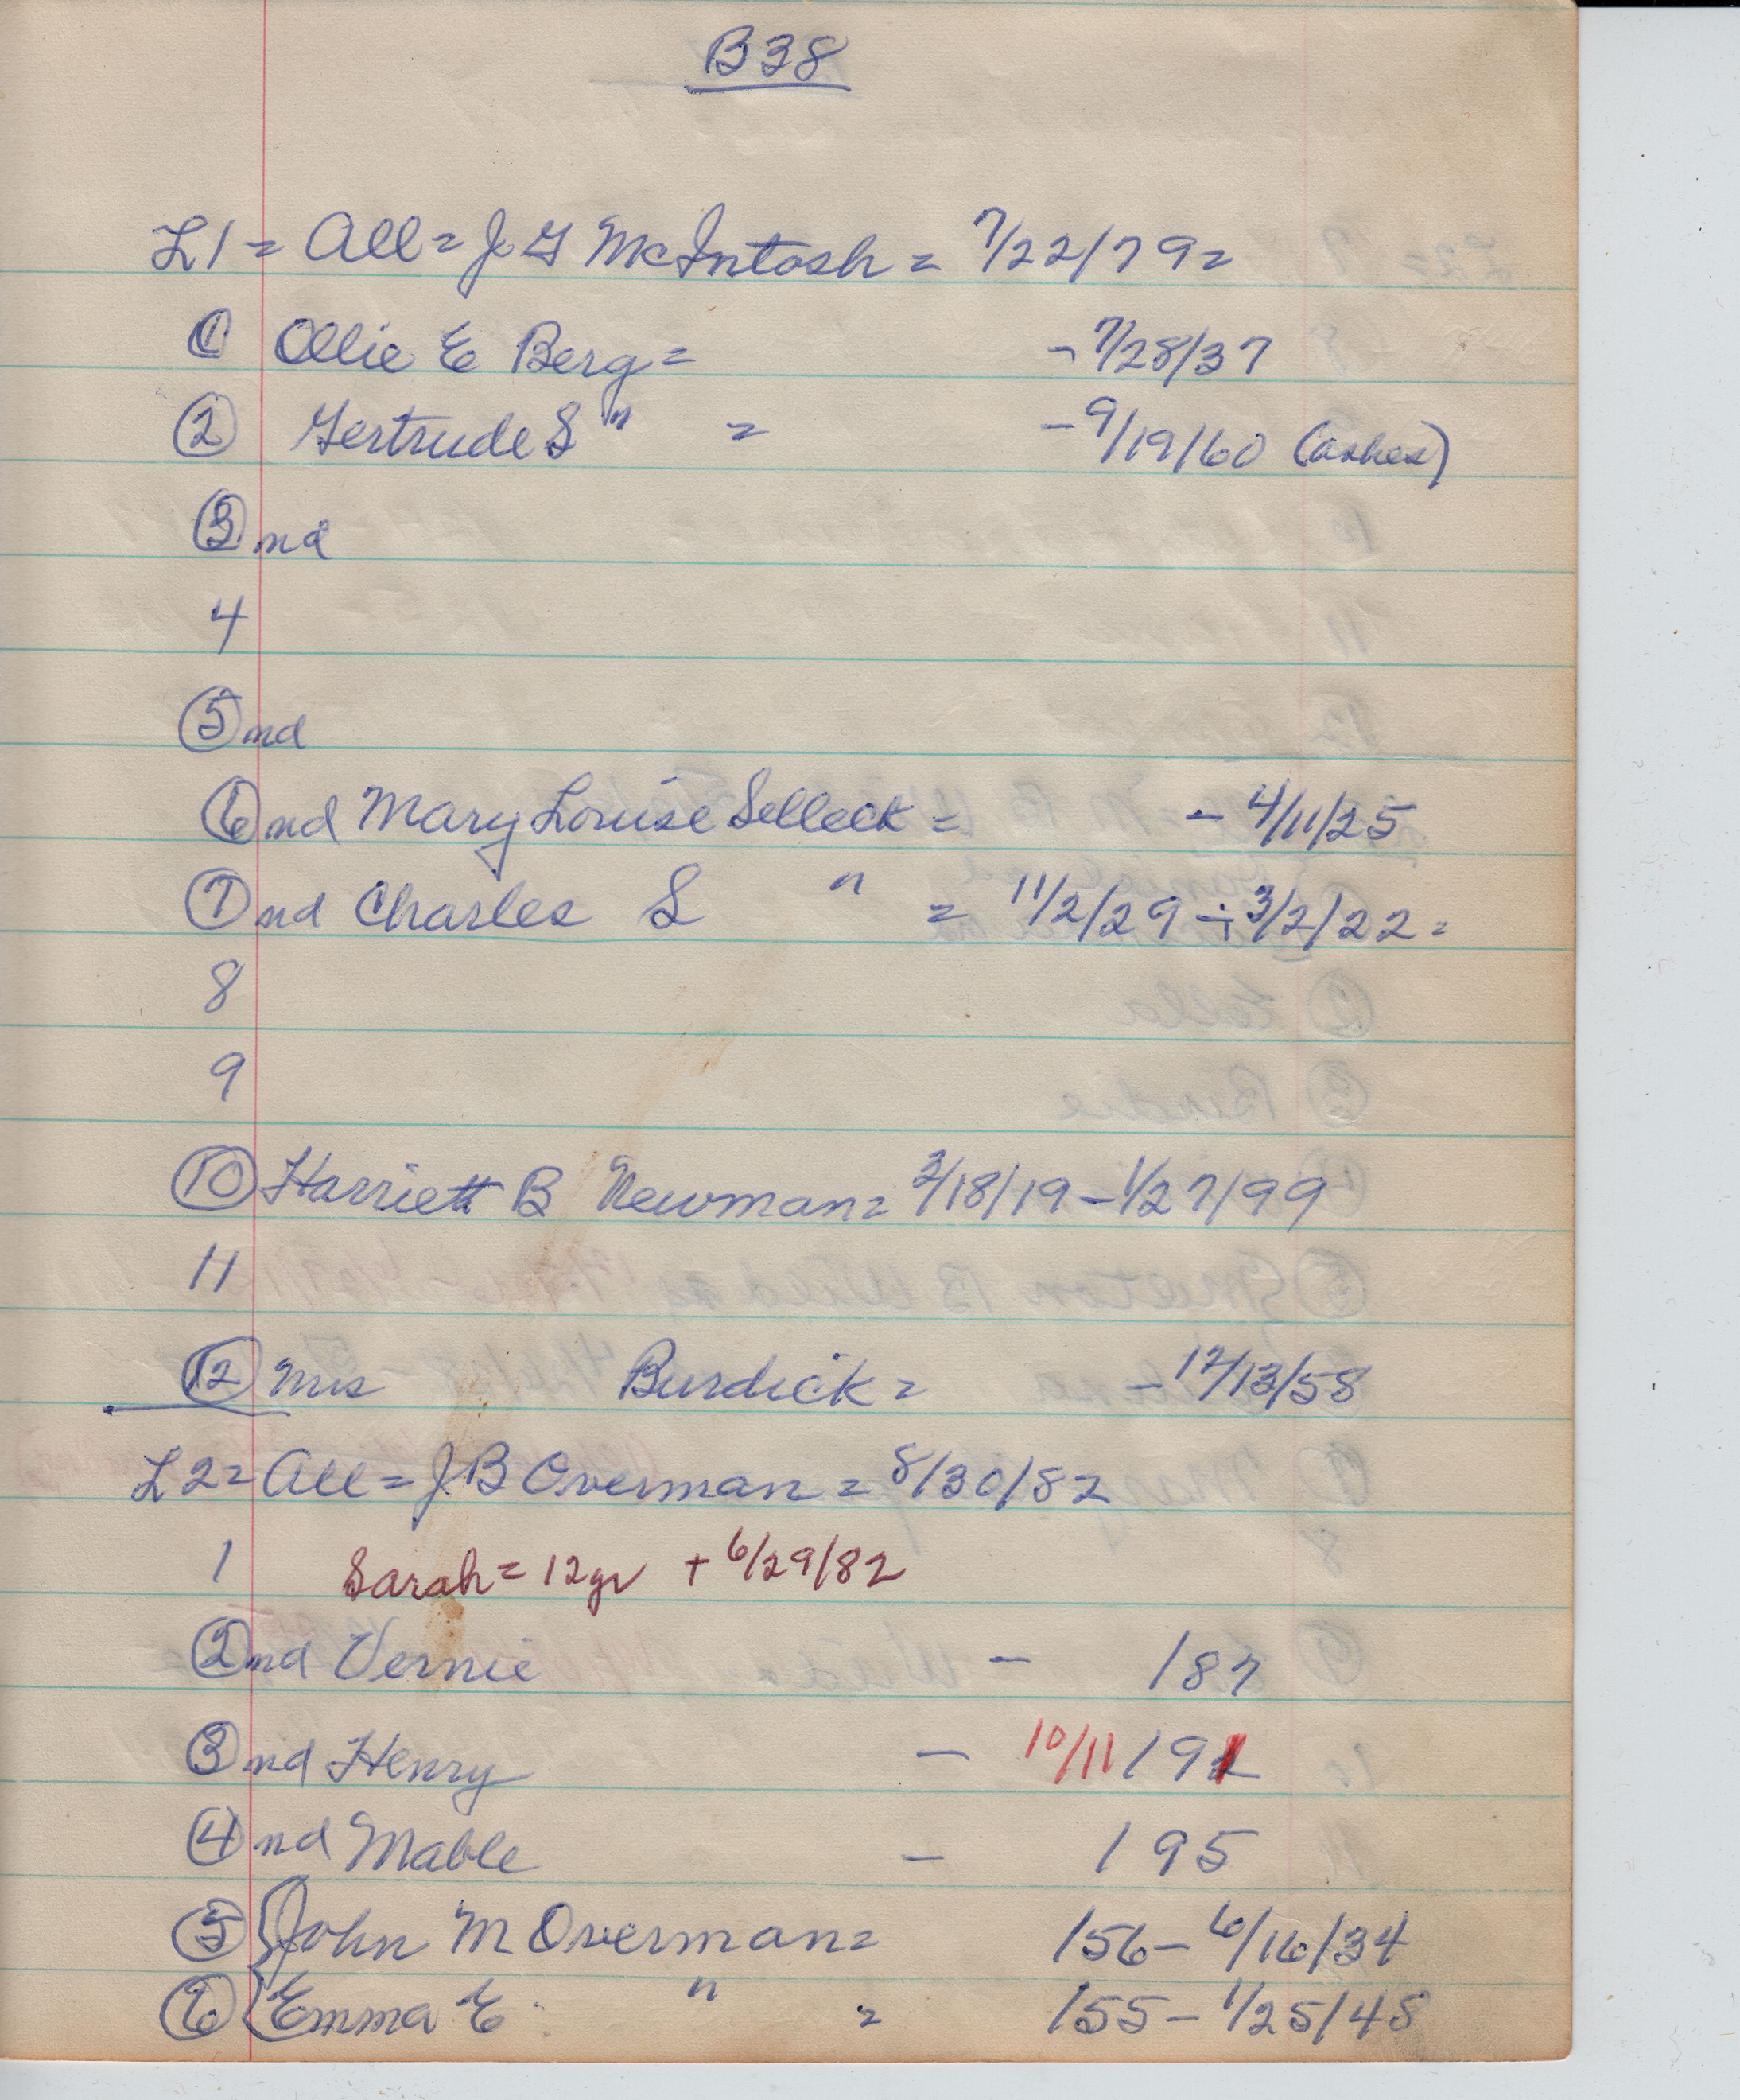 B38
L1= All= J G McIntosh = 7/22/79=
1 Ollie E Berg= - 7/28/37
2 Gertrude S " = - 9/19/60 (ashes)
3 nd
4
5 nd
6 nd Mary Louise Selleck = - 4/11/25
7 nd Charles S " = 11/2/29 ÷ 3/2/22=
8
9
10 Harriett B Newman= 3/18/19 - 1/27/99
11
12 Mrs Burdick= - 12/13/58
L2= All= J B Overman = 8/30/82
1 Sarah= 12gr + 6/29/82
2 nd Vernie - /87
3 nd Henry - 10/11/91
4 nd Mable - /95
5 John M Overman= /56 - 6/16/34
6 Emma E " = /55 - 1/25/48